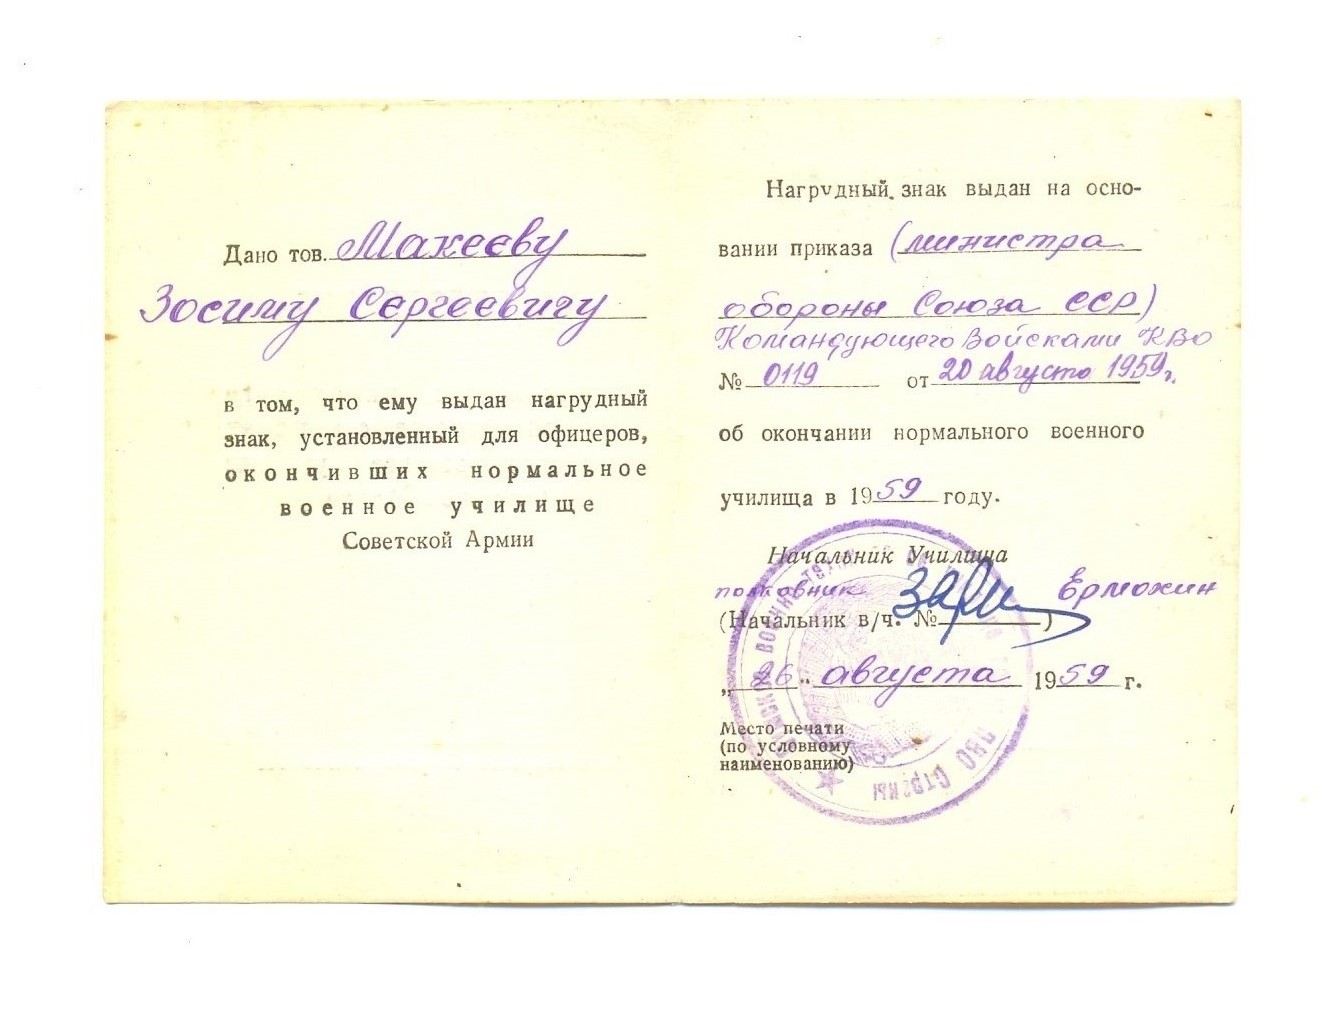 Дано тов. Макееву
Зосиму Сергеевичу
в том, что ему выдан нагрудный
знак, установленный для офицеров,
окончивших нормальное
военное училище
Советской Армии
Нагрудный знак выдан на осно-
вании приказа (министра
обороны Союза ССР)
Командующего Войсками КВО
№ 0119 от 20 августа 1959 г.
об окончании нормального военного
училища в 1959 году.
Начальник Училища
полковник Ермохин
(Начальник в/ч. № )
„26" августа 1959 г.
Место печати
(по условному
наименованию)
ПВО Страны